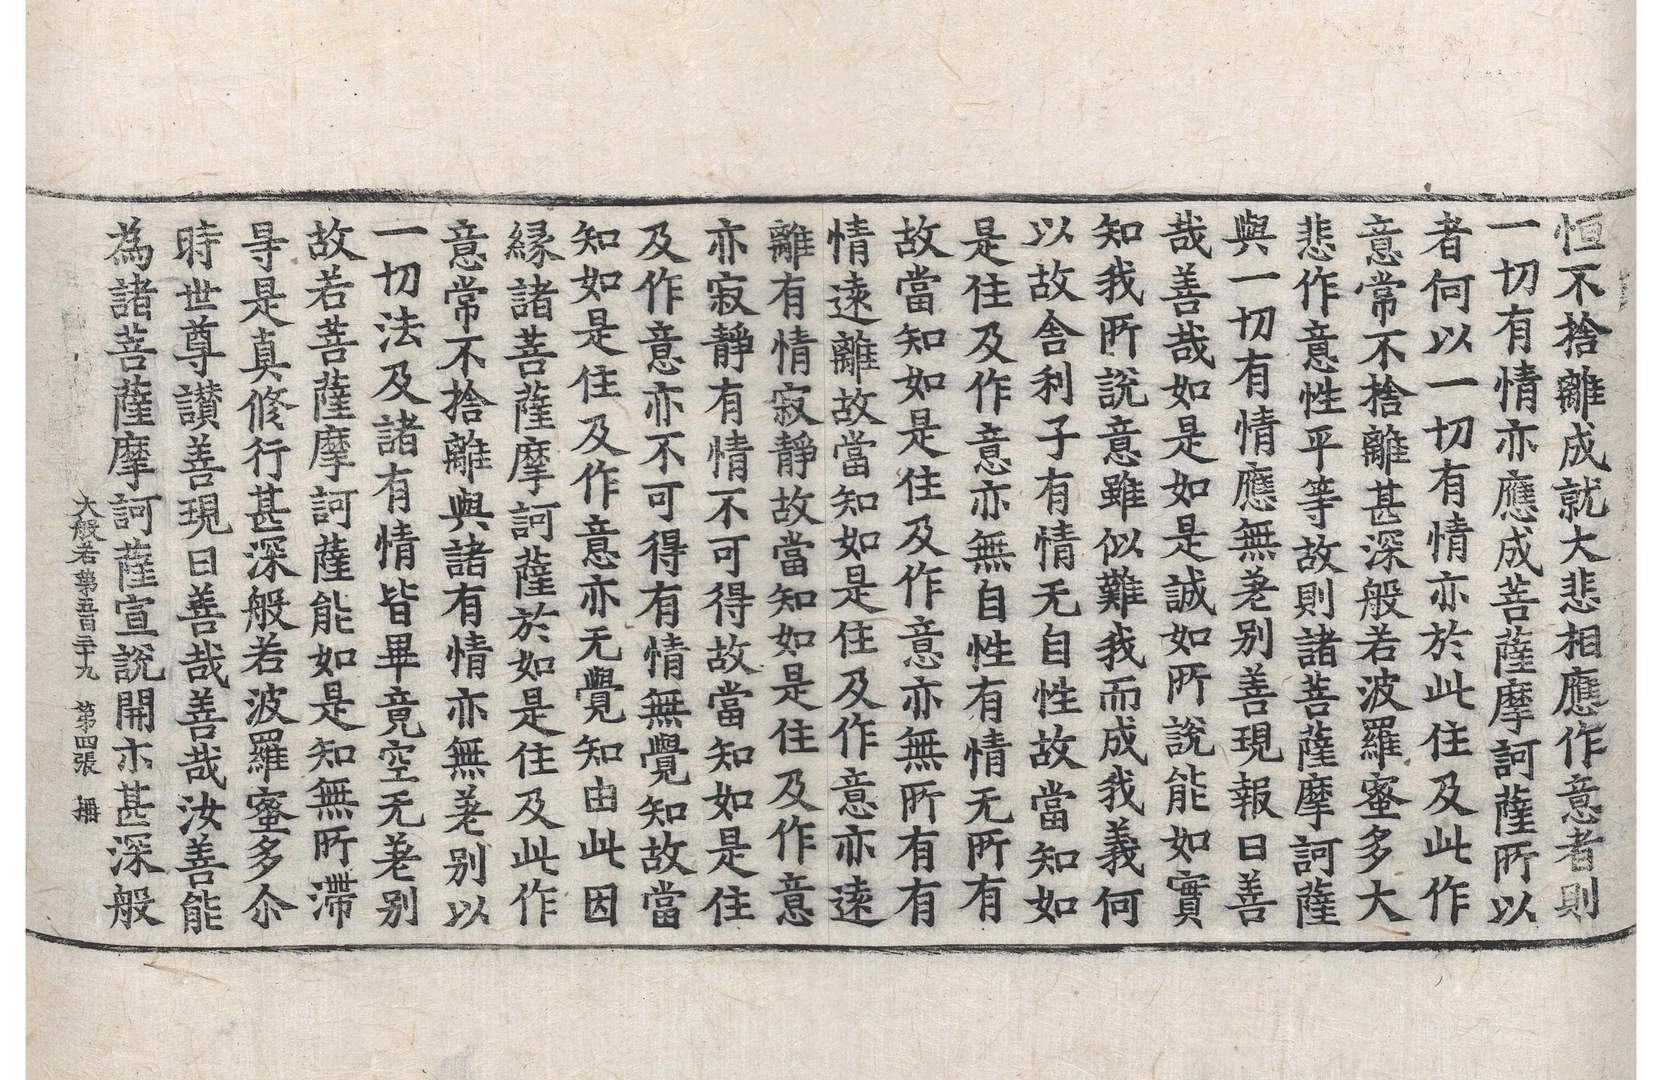 恒不捨離成就大悲相應作意者則
一切有情亦應成菩薩摩訶薩所以
者何以一切有情亦於此住及此作
意常不捨離甚深般若波羅蜜多大
悲作意性平等故則諸菩薩摩訶薩
與一切有情應無差别善現報曰善
哉善哉如是如是誠如所說能如實
知我所說意雖似難我而成我義何
以故舍利子有情无自性故當知如
是住及作意亦無自性有情无所有
故當知如是住及作意亦無所有有
情遠離故當知如是住及作意亦遠
離有情寂靜故當知如是住及作意
亦寂靜有情不可得故當知如是住
及作意亦不可得有情無覺知故當
知如是住及作意亦无覺知由此因
緣諸菩薩摩訶薩於如是住及此作
意常不捨離與諸有情亦無差别以
一切法及諸有情皆畢竟空无差别
故若菩薩摩訶薩能如是知無所滯
㝵是真修行甚深般若波羅蜜多尒
時世尊讚善現曰善哉善哉汝善能
為諸菩薩摩訶薩宣說開示甚深般
大般若第五百三十九 第四張